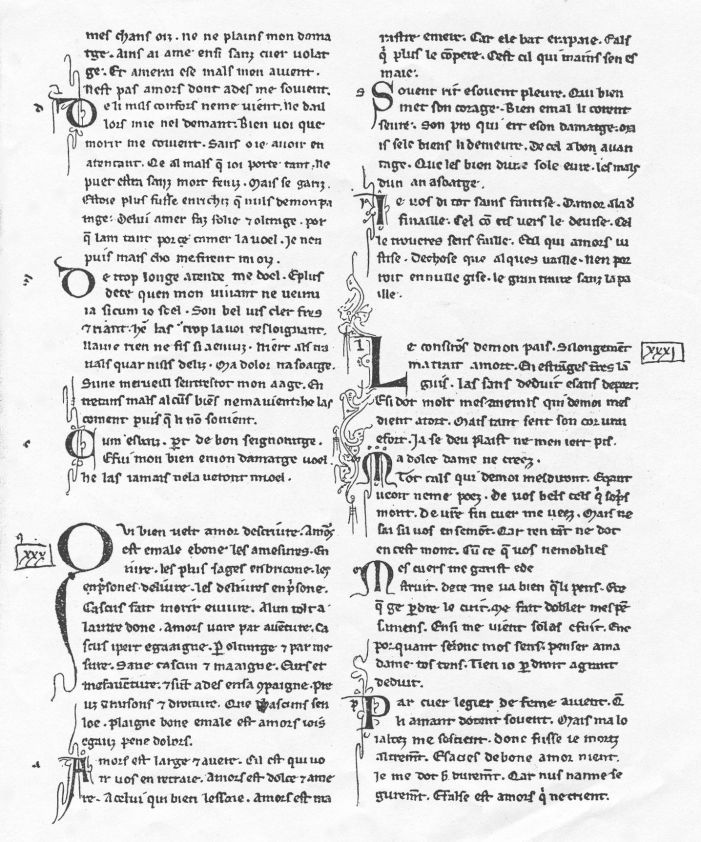 mes chans oiz. ne ne plains mon doma
tge. Ains ai ame ensi sanz cuer volat
ge. Et amerai ese mals men auient.
Nest pas amors dont ades me souient.
De li mils confors neme vient. Ne dail
lors mie nel demant. Bien voi que
morir me couient. Sans ioie auoir en
atendant. Ce al mals q ioi porte tant. Ne
puet estra sanz mort feniz. Mais se ganz.
Estoie plus fusse enrichiz q nuls demonpa
rage. Delui amer faz folie 7 oltrage. por
q lam tant porce amer la voel. Je nen
puis mais cho mesirent mi oiz.
De trop longe atende me doel. Eplus
dece quen mon viuant ne veirai
ia sicum io soel. Son bel vis cler fres
7 riant. he las trop la uoi resloignant.
rien ne sis si
nals quar nuls deliz. Ma dolor nasoatge.
Sune merueill seurrestot mon aage. En
trerans mals alcus biens nemauient. he las
coment puis q li no souient.
Cum esanz. part de bon seignoratge.
Esui mon bien enson damatge voel.
he las iamais nela veront mi oel.
xxx
Qvi bien velt amor descriure. Amors
est emale ebone les amesures. En
iure. les plus sages en bricone. les
enpsones deliure. les deliures enpsone.
Cascus fait morir eviure. Alun tolt a
lautre done. Amors vait par auenture. Ca
scus ipert egaaigne. p oltratge 7 par me
sure. Sane cascun 7 maaigne. Eurs et
mesauenture. 7 sunt ades ensa 9paigne. Pre
uz raisons 7 droiture. Que chascuns sen
loe. plaigne bone emale est amors iois
egaus pene dolors.
Amors est large 7 auere. Cil est qui vo
ir vos en retraie. Amors est dolce 7 ame
re. A celui qui bien lessaie. Amors est ma
rastre emere. Car ele bat erapaie. Eals
q plus le copere. Cest cil qui mains sen es
maie.
Souent rit esouent pleure. Qui bien
met son corage. Bien emal li corent
seure. Son pro qui ert eson damatge. Ma
is sele biens li demeure. De cel a bon auan
tage. Que les bien dure sole eure. les mals
dun an asoatge.
Je vos di tot sans faintise. Damor ala d
finaille. Cel co cis vers le deuise. Cel
le troueres sens faille. Ceil qui amors iu
stise. Dechose que alques vaille. Nen por
roit en nulle gise. le gran traite sanz la pa
ille.
xxxI
Le consirers demon pais. Silongement
ma trait amort. En estranges tres lan
guis. las sans deduit esans deport.
Esi dot molt mes anemis qui demoi mes
dient atort. Mais tant sent son cor vrai
efort. Ja se deu plaist ne men iert pis.
Ma dolce dame ne creez.
Tot cals qui demoi mesdiront. Equant
ueoir neme poez. De vos bels oels q sospris
mont. De vre fin cuer me veez. Mais ne
sai sil vos en semont. Qar ren tant ne dot
en cest mont. Cu ce q vos nemobliés
Mes cuers me garist ede
struit. Dece me va bien qli pens. Ete
q ge perdre le cuit. Me fait dobler mespe
simens. Ensi me vient solas efuit. Enc
porquant selonc mos sens. penser a ma
dame tos tens. Tien io p droit agrant
deduit.
Par cuer legier de feme auient. Q
li amant dotent souent. Mais ma lo
ialtez me sostient. Donc fusse ie mortz
altremt. Esacies de bone amor nient.
Je me dot h durement. Qar nus name se
gurement. Efalse est amors q ne crient.